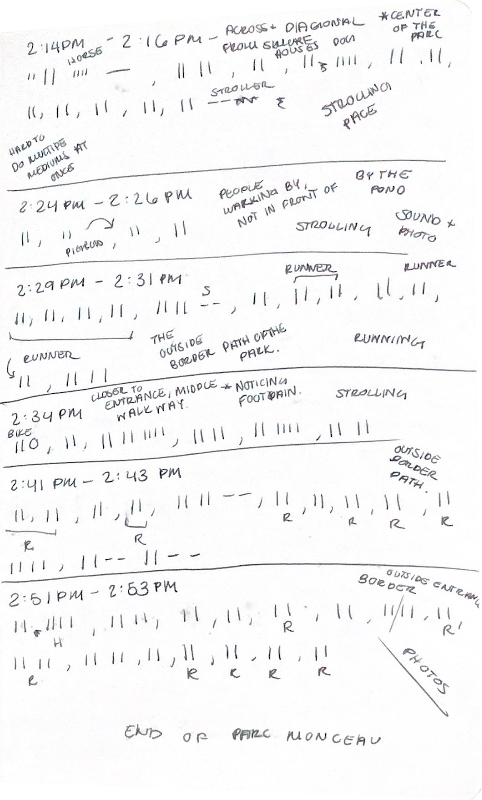 2:14PM - 2:16PM - ACROSS + DIAGIONAL
FROM SQUARE
HOUSES DOG
*CENTER
OF THE
PARC
HORSE
STROLLER
STROLLING
PACE
HARD TO
DO MULTIPLE
MEDIUMS AT
ONCE
2:24 PM - 2:26 PM
PEOPLE
WALKING BY,
NOT IN FRONT OF
BY THE
POND
STROLLING
SOUND +
PHOTO
2:29 PM - 2:31 PM
RUNNER
RUNNER
S
RUNNER
THE
OUTSIDE
BORDER PATH OF THE
PARK.
RUNNING
2:34 PM
CLOSER TO
ENTRANCE, MIDDLE
WALKWAY.
* NOTICING
STROLLING
BIKE
2:41 PM - 2:43 PM
OUTSIDE
BORDER
PATH.
R R R R R R
2:51 PM - 2:53 PM
OUTSIDE ENTRANCE
BORDER
H R R
R R R R R
PHOTOS
END OF PARC MONCEAU